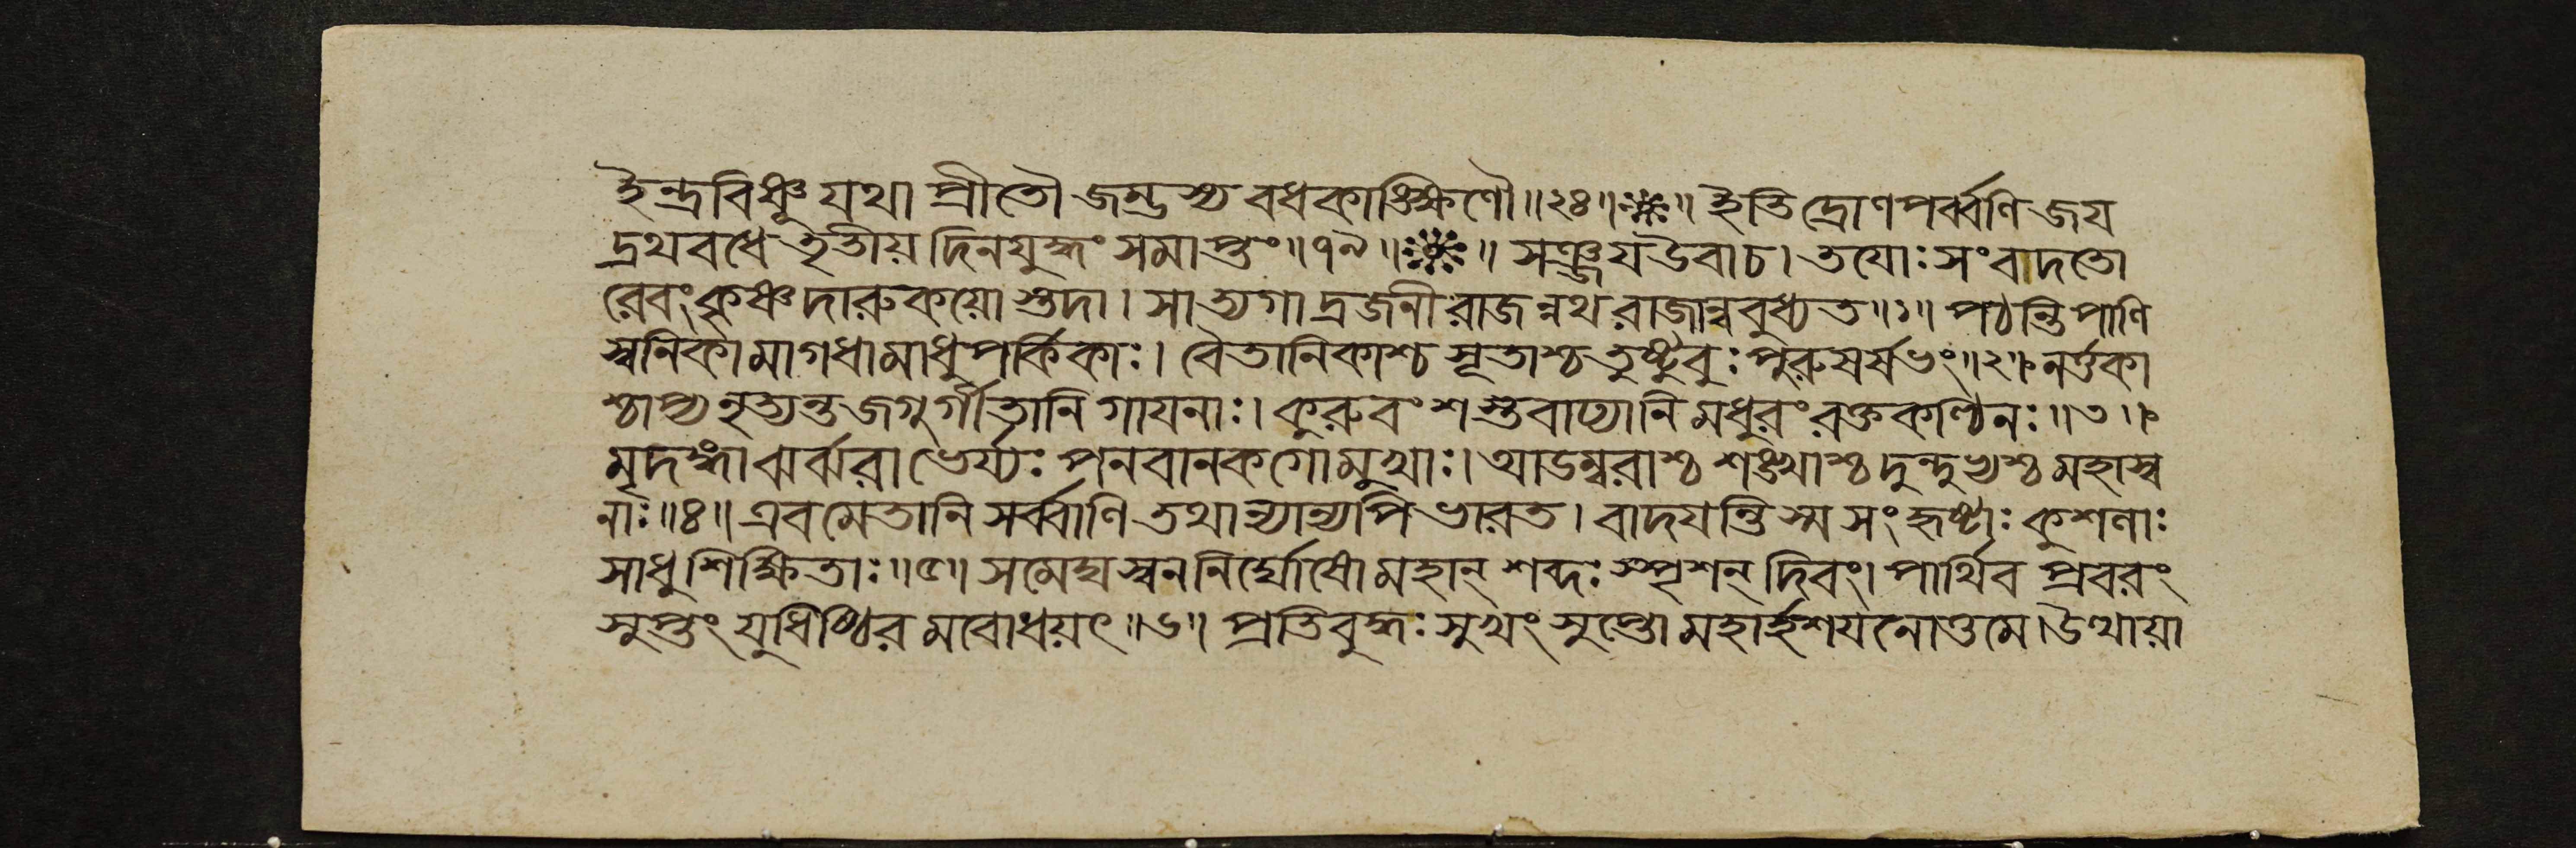 ইন্দ্রবিষ্ণূ যথা প্রীতৌ জম্ভস্য বধকাঙ্ক্ষিণৌ॥২৪॥ ॥ইতি দ্রোণপর্ব্বণি জয়
দ্রথবধে তৃতীয়দিনযুদ্ধং সমাপ্তং॥৭৯॥ ॥ সঞ্জয় উবাচ। তয়োঃ সংবাদতো
রেবং কৃষ্ণদারুকয়োস্তদা। সাত্যগাদ্রজনী রাজন্নথ রাজান্ববুধ্যত॥১॥ পঠন্তি পাণি
স্বনিকা মাগধা মাধুপর্কিকাঃ। বৈতানিকাশ্চ সূতাশ্চ তুষ্টুবুঃ পুরুষর্ষভং॥২॥ নর্ত্তকা
শ্চাপ্যনৃত্যন্ত জগুর্গীতানি গায়নাঃ। কুরুবংশস্তবাপ্যানি মধুরং রক্তকণ্ঠিনঃ॥৩॥
মৃদঙ্গা ঝর্ঝরা ভের্য্যঃ পনবানকগোমুখাঃ। আডম্বরাশ্চ শঙ্খাশ্চ দুন্দুভ্যশ্চ মহাস্ব
নাঃ॥৪॥ এবমেতানি সর্ব্বাণি তথান্যান্যপি ভারত। বাদয়ন্তি স্ম সংহৃষ্টাঃ কুশলাঃ
সাধুশিক্ষিতাঃ॥৫॥ সমেঘস্বননির্ঘোষো মহান্ শব্দঃ স্পৃশন্ দিবং। পার্থিবপ্রবরং
সুপ্তং যুধিষ্ঠিরমবোধয়ৎ॥৬॥ প্রতিবুদ্ধঃ সুখং সুপ্তো মহার্হশয়নোত্তমে। উত্থায়া